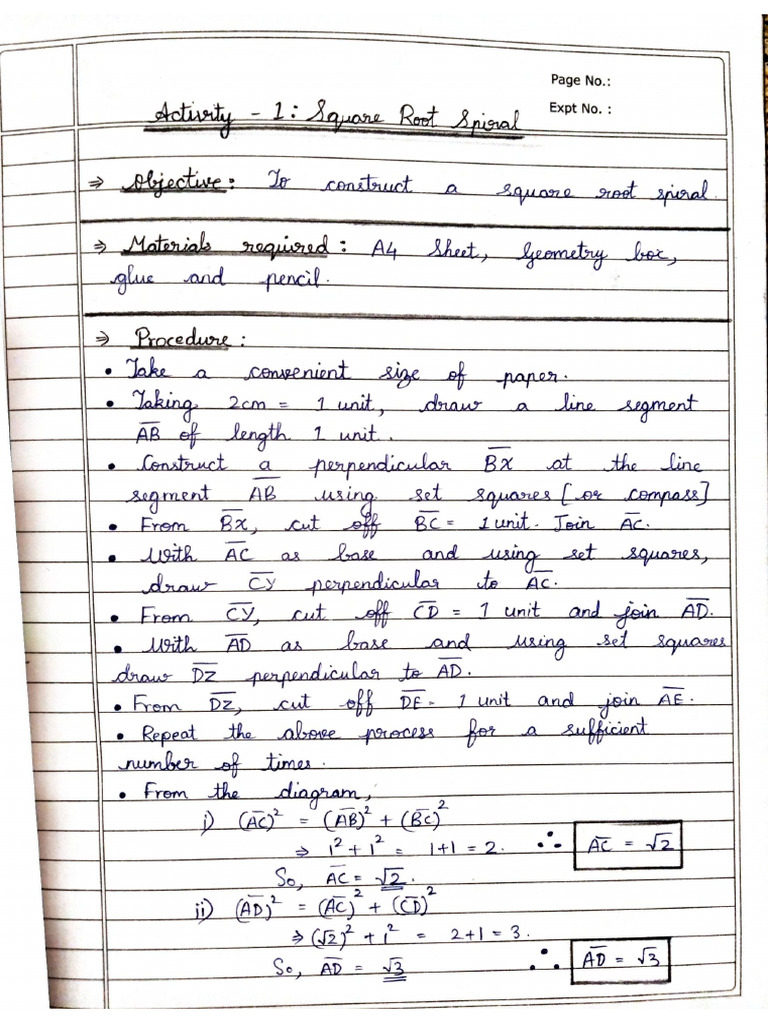 Page No.:
Expt No. :
Activity - 1: Square Root Spiral
⇒ Objective: To construct a square root spiral.
⇒ Materials required: A4 Sheet, Geometry box,
glue and pencil.
⇒ Procedure:
• Take a convenient size of paper.
• Taking 2cm = 1 unit, draw a line segment
A̅B̅ of length 1 unit.
• Construct a perpendicular B̅X̅ at the line
segment A̅B̅ using set squares [or compass]
• From B̅X̅, cut off B̅C̅ = 1 unit. Join A̅C̅.
• With A̅C̅ as base and using set squares,
draw C̅Y̅ perpendicular to A̅C̅.
• From C̅Y̅, cut off C̅D̅ = 1 unit and join A̅D̅.
• With A̅D̅ as base and using set squares
draw D̅Z̅ perpendicular to A̅D̅.
• From D̅Z̅, cut off D̅E̅ = 1 unit and join A̅E̅.
• Repeat the above process for a sufficient
number of times.
• From the diagram,
i) (A̅C̅)² = (A̅B̅)² + (B̅C̅)²
⇒ 1² + 1² = 1+1 = 2. ∴ A̅C̅ = √2
So, A̅C̅ = √2.
ii) (A̅D̅)² = (A̅C̅)² + (C̅D̅)²
⇒ (√2)² + 1² = 2+1 = 3.
So, A̅D̅ = √3 ∴ A̅D̅ = √3